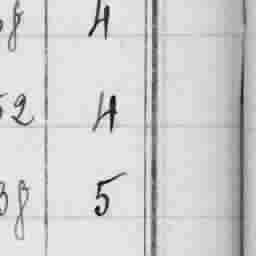 8 4
52 4
38 5